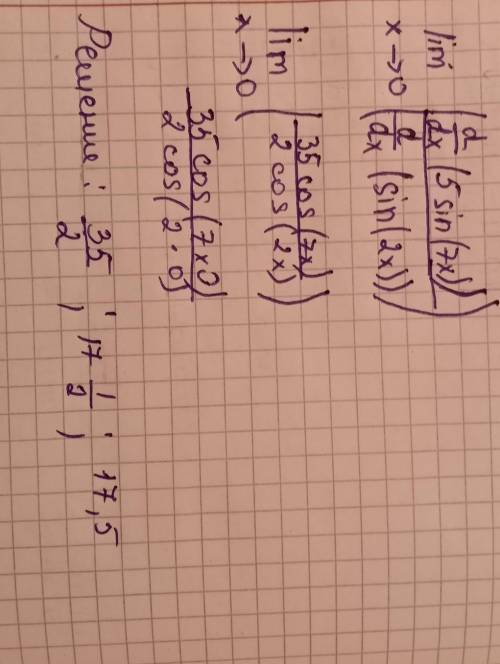 lim x→0 (d/dx (5 sin(7x)) / d/dx (sin(2x)))
lim x→0 (35 cos(7x) / 2 cos(2x))
35 cos(7×0) / 2 cos(2·0)
Решение: 35/2 ; 17 1/2 ; 17,5